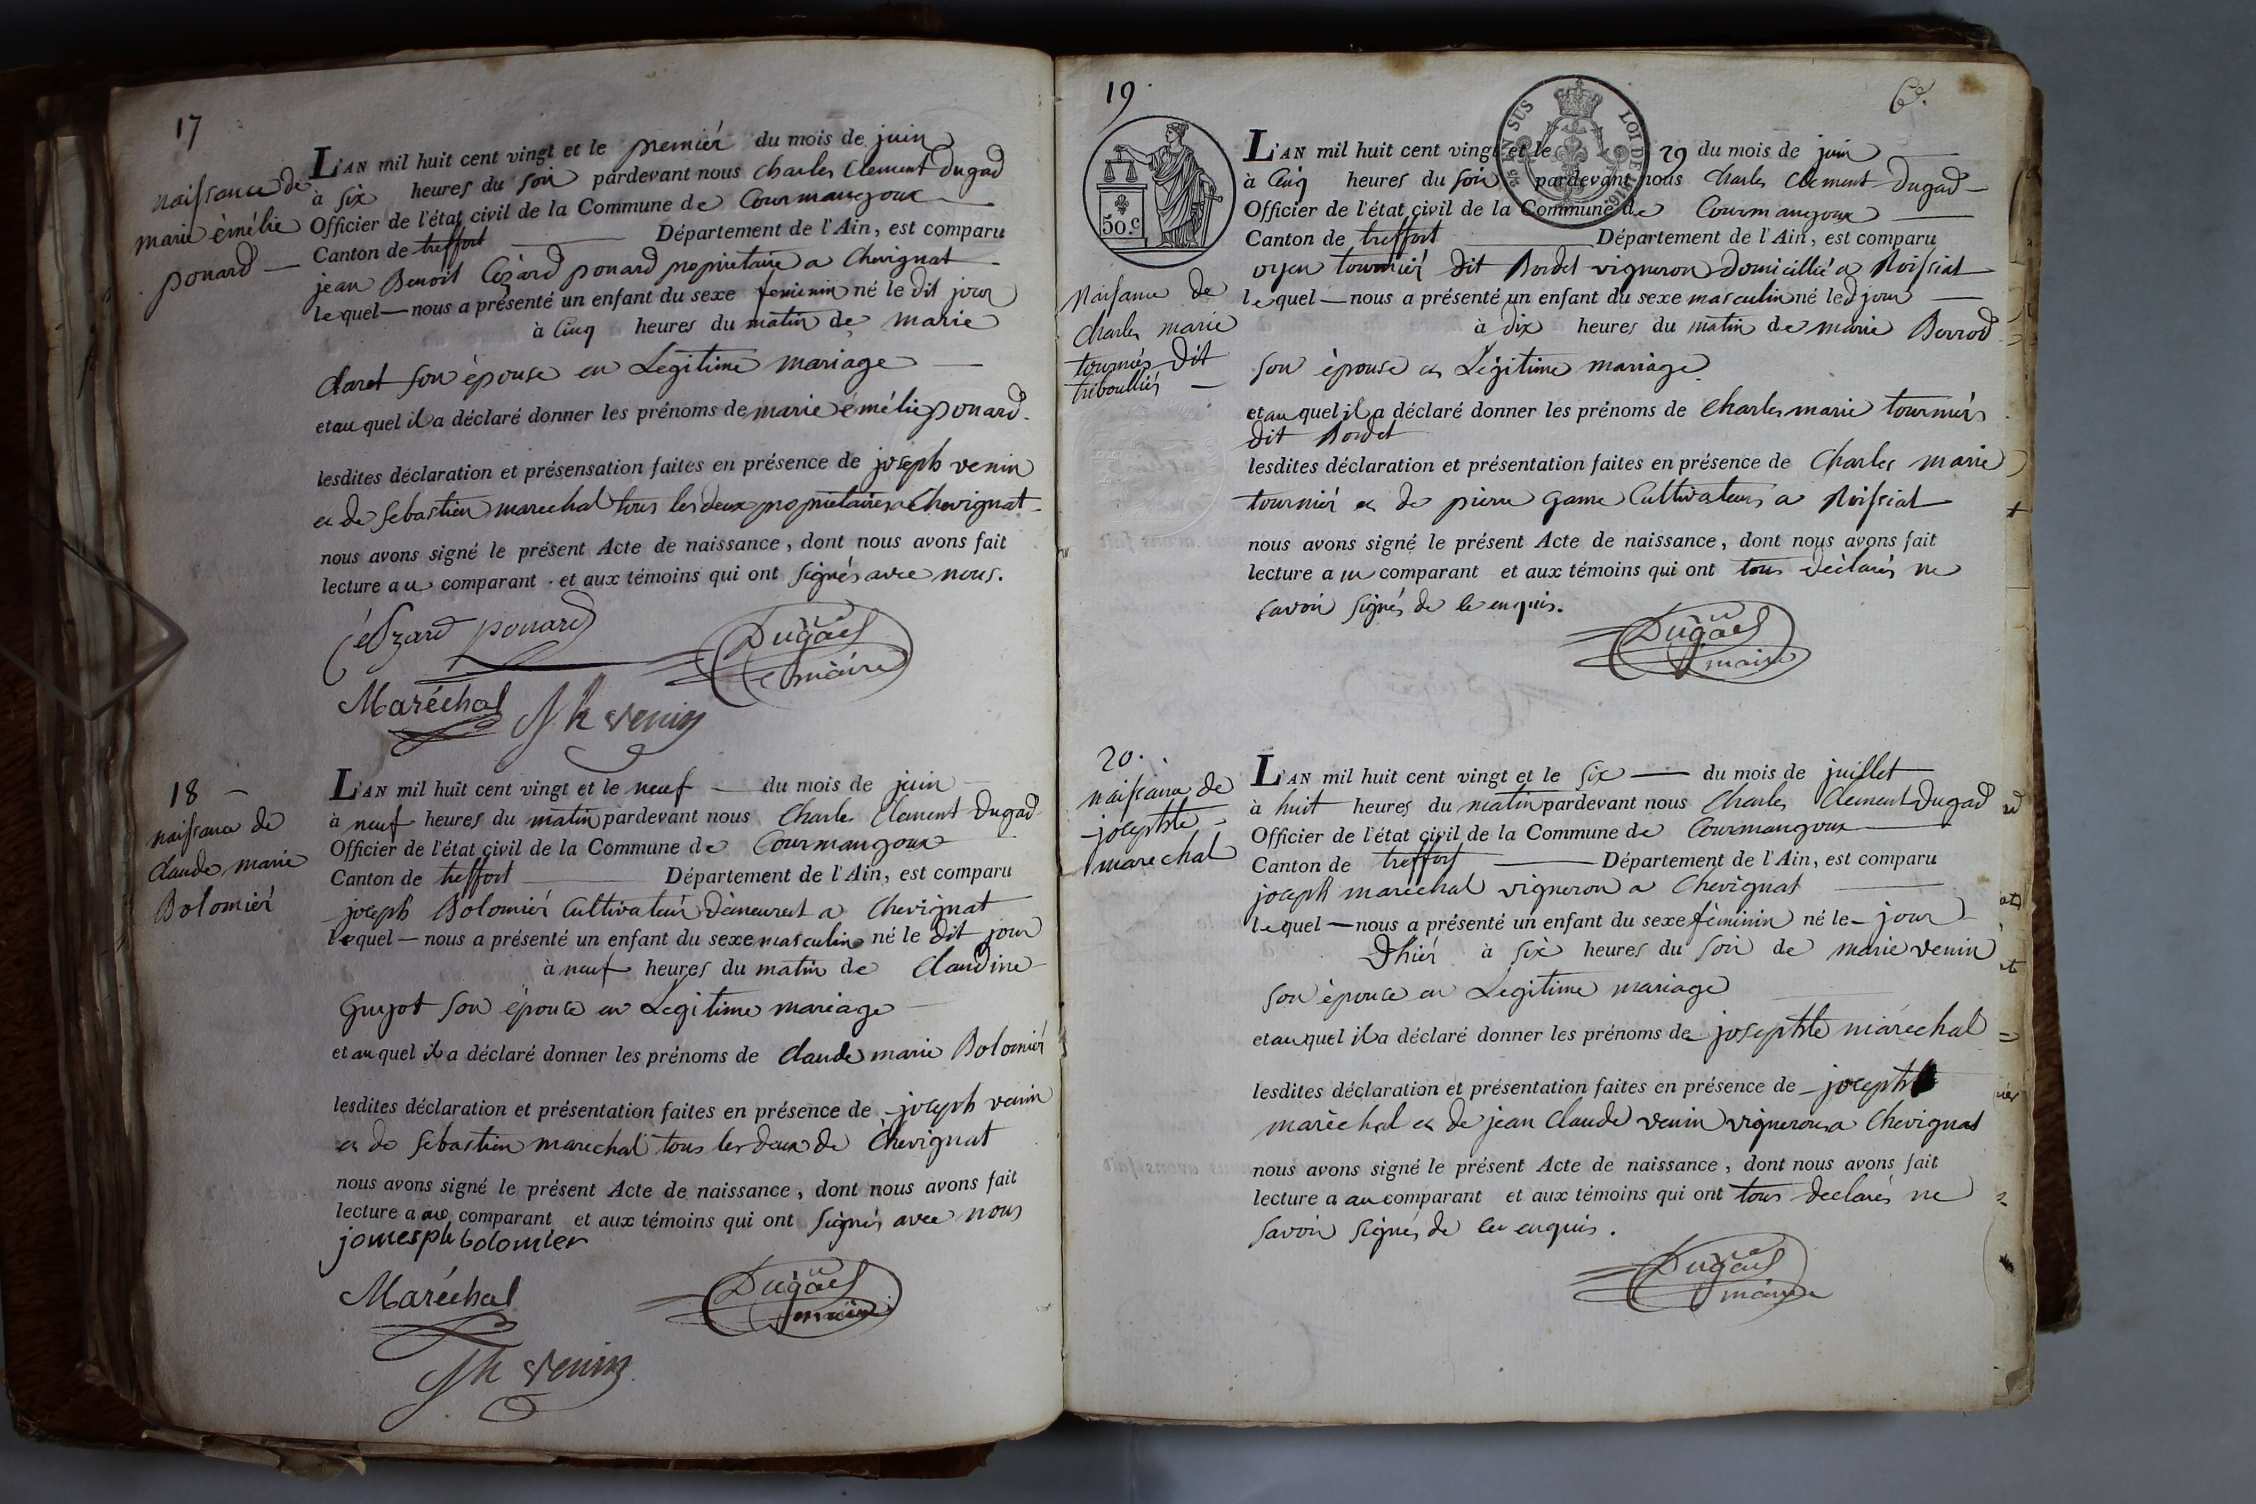 17
naissance de
marie émélie
ponard —
L'AN mil huit cent vingt et le premiér du mois de juin
à six heures du soir pardevant nous Charles Clement Dugad
Officier de l'état civil de la Commune de Courmangoux
Canton de treffort Département de l'Ain, est comparu
jean Benoit Cézard ponard propriétaire a Chevignat
lequel — nous a présenté un enfant du sexe feminin né le dit jour
à Cinq heures du matin de marie
Claret son épouse en Legitime mariage —
et au quel il a déclaré donner les prénoms de marie émélie ponard.
lesdites déclaration et présensation faites en présence de joseph venin
et de sebastien marechal tous les deux propriétaires a Chevignat
nous avons signé le présent Acte de naissance, dont nous avons fait
lecture au comparant et aux témoins qui ont signés avec nous.
Cézard ponard
Dugad
maire
Maréchal
Jh venin
18 —
naissance de
claude marie
Bolomiér
L'AN mil huit cent vingt et le neuf — du mois de juin
à neuf heures du matin pardevant nous Charles Clement Dugad
Officier de l'état civil de la Commune de Courmangoux
Canton de treffort Département de l'Ain, est comparu
joseph Bolomiér Cultivateur demeurent a Chevignat
lequel — nous a présenté un enfant du sexe masculin né le dit jour
à neuf heures du matin de Claudine
Guyot son épouse en Legitime mariage
et au quel il a déclaré donner les prénoms de claude marie Bolomiér
lesdites déclaration et présentation faites en présence de joseph venin
et de Sebastien marechal tous les deux de Chevignat
nous avons signé le présent Acte de naissance, dont nous avons fait
lecture a au comparant et aux témoins qui ont signés avec nous
jomesph bolomier
Maréchal
Dugad
maire
Jh venin
19.
6e.
50 C
EN SUS
LOI DE 1816
Naissance de
Charles marie
tourniér dit
triboulliér —
L'AN mil huit cent vingt et le 29 du mois de juin
à Cinq heures du soir pardevant nous Charles Clement Dugad —
Officier de l'état civil de la Commune de Courmangoux
Canton de treffort Département de l'Ain, est comparu
oyen tourniér dit Bordet vigneron domicillié a Roissiat
lequel — nous a présenté un enfant du sexe masculin né led jour —
à dix heures du matin de marie Berrod
son épouse en Légitime mariage
et au quel il a déclaré donner les prénoms de Charles marie tourniér
dit Bordet
lesdites déclaration et présentation faites en présence de Charles marie
tourniér et de pierre game Cultivateurs a Roissiat
nous avons signé le présent Acte de naissance, dont nous avons fait
lecture a au comparant et aux témoins qui ont tous déclarés ne
savoir signés de ce enquis.
Dugad
maire
20.
naissance de
josephte
marechal
L'AN mil huit cent vingt et le six — du mois de juillet
à huit heures du matin pardevant nous Charles Clement Dugad
Officier de l'état civil de la Commune de Courmangoux
Canton de treffort Département de l'Ain, est comparu
joseph marechal vigneron a Chevignat
lequel — nous a présenté un enfant du sexe féminin né le — jour
Dhiér à six heures du soir de marie venin
son épouse en Legitime mariage
et au quel il a déclaré donner les prénoms de josephte maréchal
lesdites déclaration et présentation faites en présence de joseph
maréchal et de jean Claude venin vignerons a Chevignat
nous avons signé le présent Acte de naissance, dont nous avons fait
lecture a au comparant et aux témoins qui ont tous declarés ne
savoir signés de ce enquis.
Dugad
maire